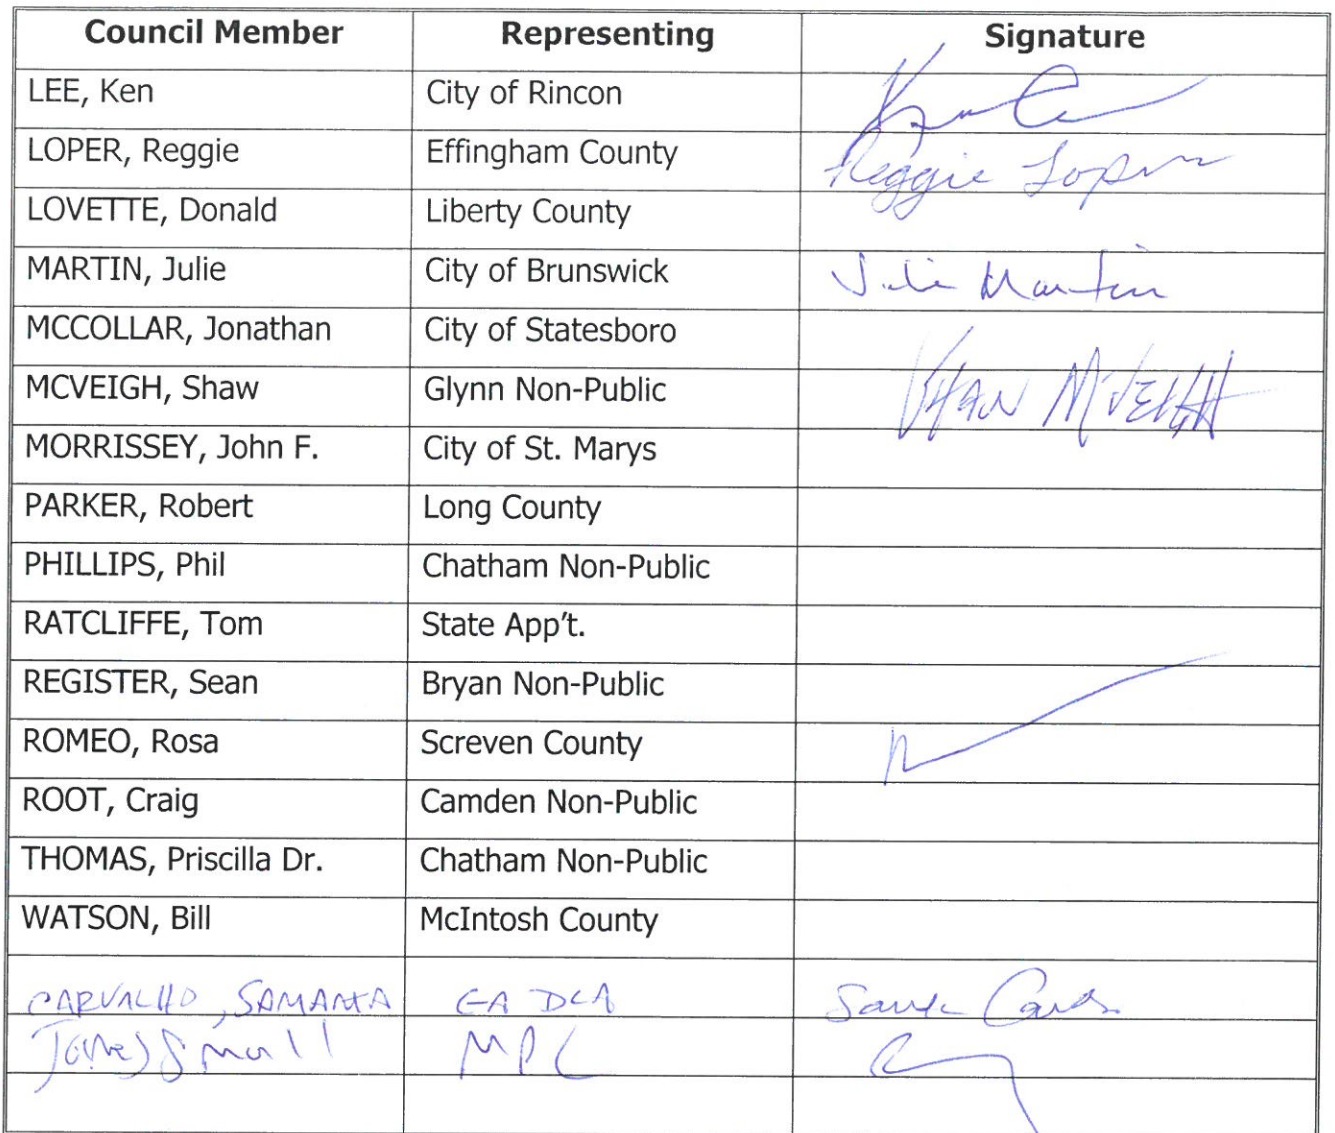 Council Member Representing Signature
LEE, Ken City of Rincon
LOPER, Reggie Effingham County Reggie Loper
LOVETTE, Donald Liberty County
MARTIN, Julie City of Brunswick Julie Martin
MCCOLLAR, Jonathan City of Statesboro
MCVEIGH, Shaw Glynn Non-Public SHAW McVEIGH
MORRISSEY, John F. City of St. Marys
PARKER, Robert Long County
PHILLIPS, Phil Chatham Non-Public
RATCLIFFE, Tom State App't.
REGISTER, Sean Bryan Non-Public
ROMEO, Rosa Screven County
ROOT, Craig Camden Non-Public
THOMAS, Priscilla Dr. Chatham Non-Public
WATSON, Bill McIntosh County
CARVALHO, SAMANTA GA DCA
James Small MPC